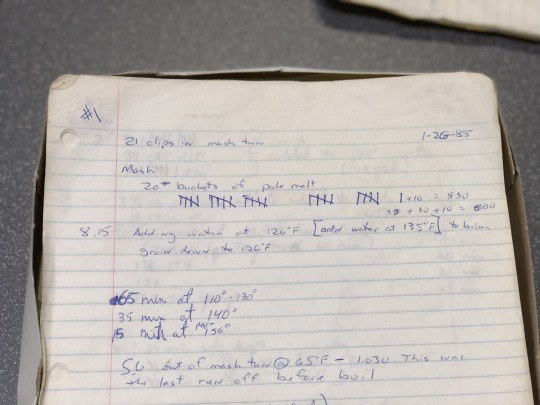 #1
21 clips in mash tun 1-26-85
Mash
20# buckets of pale malt
1+10 = 530
+ 30 + 10 = 600
8.15 Adding water at 126°F [add water at 135°F] to bring
grain down to 126°F
65 min at 110°-130°
35 min at 140°
5 min at 156°
S.G out of mash tun @ 65°F - 1.030. This was
the last run off before boil